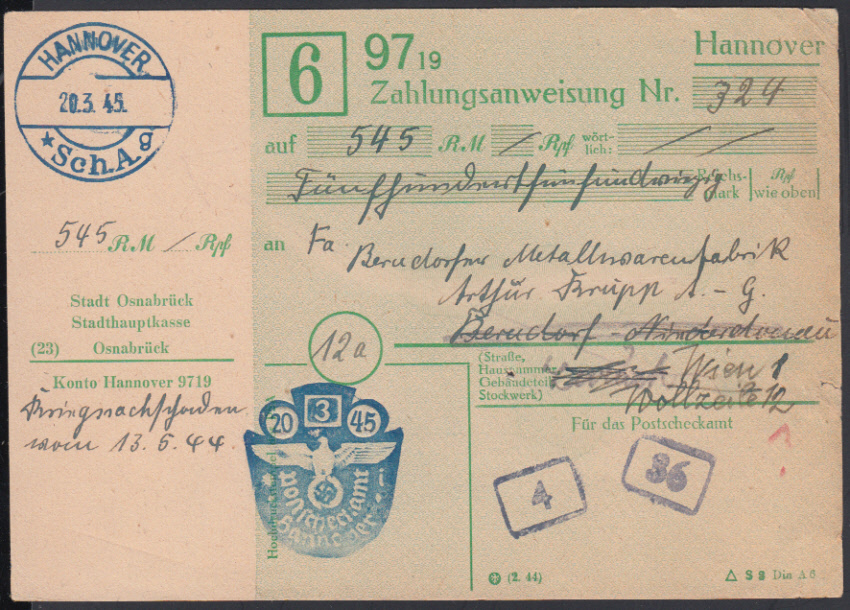 HANNOVER
20.3.45.
Sch.A. g
545 RM / Rpf
Stadt Osnabrück
Stadthauptkasse
(23) Osnabrück
Konto Hannover 9719
vom 13.5.44.
6
97 19
Hannover
Zahlungsanweisung Nr. 324
auf 545 RM / Rpf wört-lich: / /
Reichs-mark Rpf wie oben
an Fa. Berndorfer Metallwarenfabrik
Arthur Krupp A.-G.
Berndorf - Niederdonau
12a
(Straße,
Hausnummer,
Gebäudeteil,
Stockwerk)
Wien 1
Wollzeile 12
Für das Postscheckamt
20 3 45
Postscheckamt
Hannover
4
36
(2. 44)
S 8 Din A 6